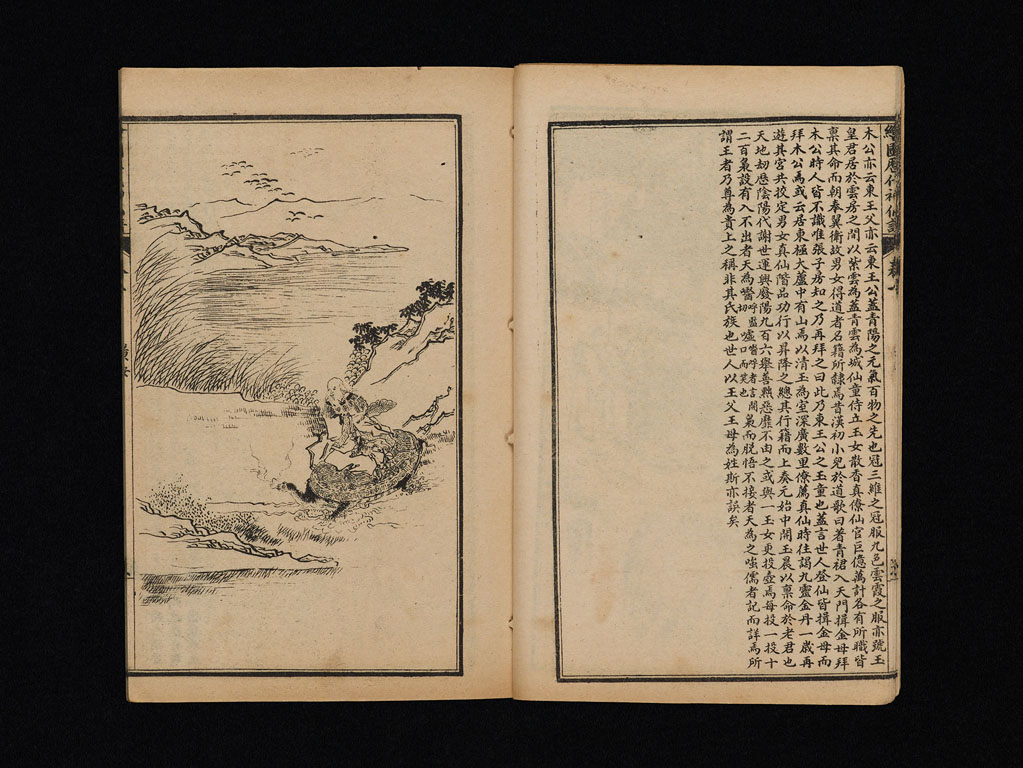 繪圖歷代神仙
木公亦云東王父亦云東王公蓋青陽之元氣百物之先也冠三維之冠服九色雲霞之服亦號玉
皇君居於雲房之間以紫雲為蓋青雲為城仙童侍立玉女散香真僚仙官巨億萬計各有所職皆
稟其命而朝奉翼衛故男女得道者名籍所隸焉昔漢初小兒於道歌曰著青裙入天門揖金母拜
木公時人皆不識唯張子房知之乃再拜之曰此乃東王公之玉童也蓋言世人登仙皆揖金母而
拜木公焉或云居東極大蘆中有山焉以清玉為室深廣數里僚薦真仙時往謁九靈金丹一歲再
遊其宮共挍定男女真仙階品功行以昇降之總其行籍而上奏元始中開玉晨以稟命於老君也
天地刼歷陰陽代謝世運興廢陽九百六舉善黜惡靡不由之或與一玉女更投壺焉每投一投十
二百梟設有入不出者天為呼監切噓者言開口而笑也梟而脫悟不接者天為之嗤儒者記而詳焉所
謂王者乃尊為貴上之稱非其氏族也世人以王父王母為姓斯亦誤矣